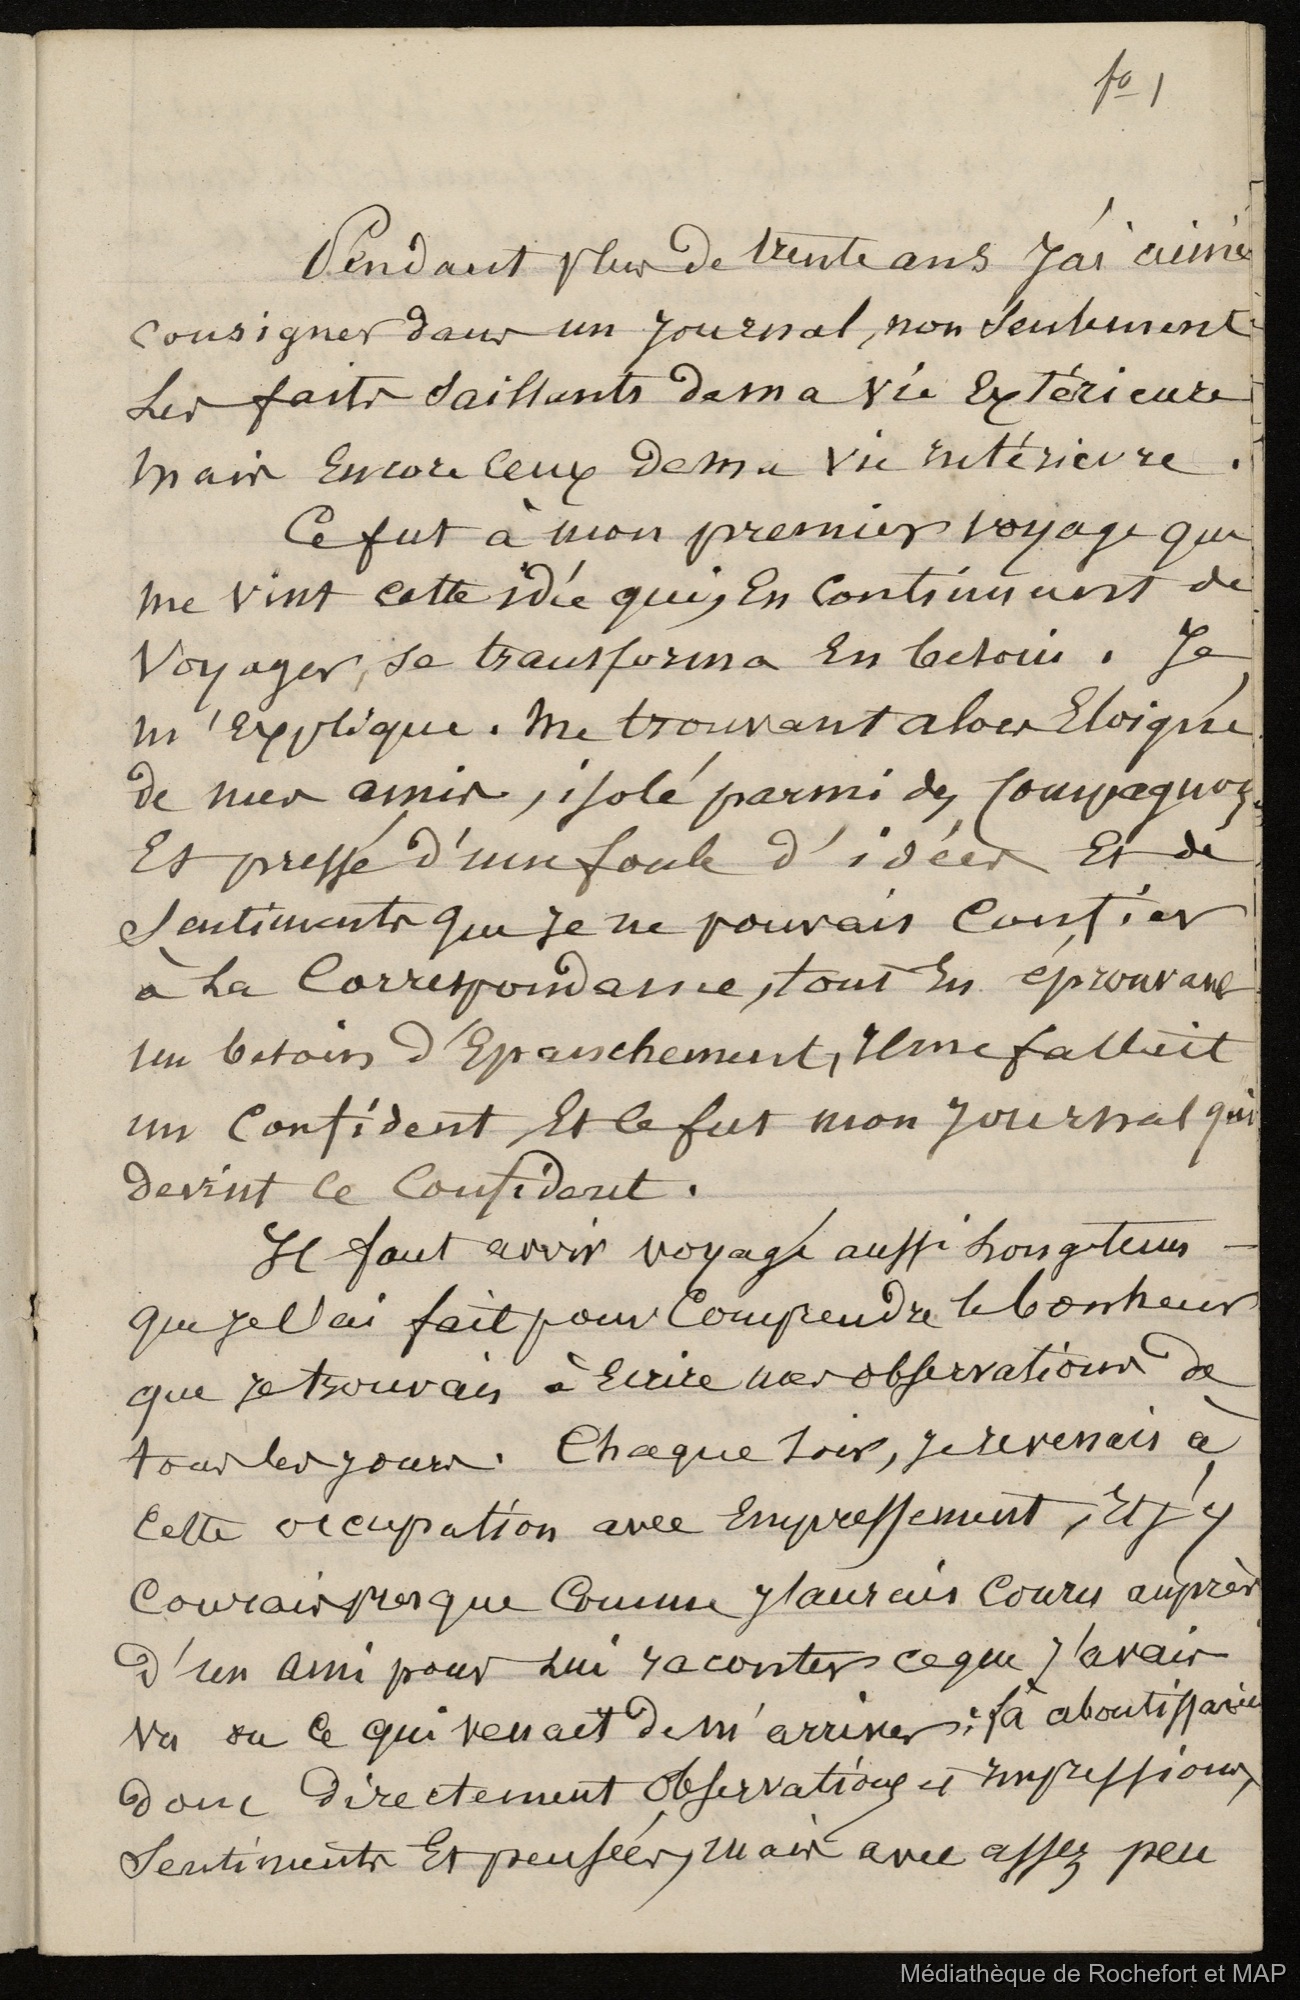 fo 1
Pendant plus de trente ans j'ai aimé
consigner dans un journal, non seulement
les faits saillants de ma vie extérieure
mais encore ceux de ma vie intérieure.
Ce fut à mon premier voyage que
me vint cette idée qui, en continuant de
voyager, se transforma en besoin. Je
m'explique. Me trouvant alors éloigné
de mes amis, isolé parmi des compagnons
et pressé d'une foule d'idées et de
sentiments que je ne pouvais confier
à la correspondance, tout en éprouvant
un besoin d'épanchement, il me fallait
un confident et ce fut mon journal qui
devint ce confident.
Il faut avoir voyagé aussi longtems
que je l'ai fait pour comprendre le bonheur
que je trouvais à écrire mes observations de
tous les jours. Chaque soir, je revenais à
cette occupation avec empressement, et j'y
courais presque comme j'aurais couru auprès
d'un ami pour lui raconter ce que j'avais
vu ou ce qui venait de m'arriver; là aboutissaient
donc directement observations et impressions,
sentiments et pensées, mais avec assez peu
Médiathèque de Rochefort et MAP